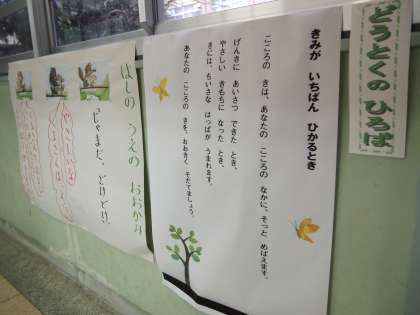 どうとくの ひろば
きみが いちばん ひかるとき
こころの きは、あなたの こころの なかに、そっと めばえます。
げんきに あいさつ できた とき、
やさしい きもちに なった とき、
きには、ちいさな はっぱが うまれます。
あなたの こころの きを、おおきく そだてましょう。
はしの うえの おおかみ
「じゃまだ、どけどけ。」